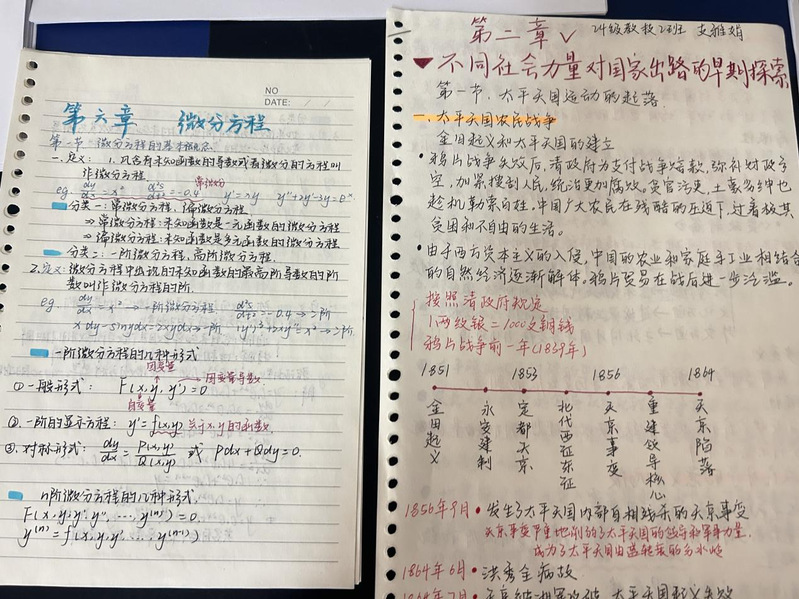 NO
DATE: / /
第六章 微分方程
第一节 微分方程的基本概念
一、定义: 1. 凡含有未知函数的导数或者微分的方程叫
作微分方程
常微分
eg. dy/dx = x² d²s/dt² = -0.4 y' = xy y''+2y'-3y = eˣ
分类一: 常微分方程、偏微分方程
⇒ 常微分方程: 未知函数是一元函数的微分方程
⇒ 偏微分方程: 未知函数是多元函数的微分方程
分类二: 一阶微分方程, 高阶微分方程
2. 定义: 微分方程中出现的未知函数的最高阶导数的阶
数叫作微分方程的阶.
eg. dy/dx = x² → 一阶微分方程 d²s/dt² = -0.4 → 二阶
一阶微分方程的几种形式
因变量
① 一般形式: F(x, y, y') = 0 → 因变量导数
自变量
②. 一阶的显示方程: y' = f(x,y) 关于x,y的函数
③. 对称形式: dy/dx = P(x,y)/Q(x,y) 或 Pdx + Qdy = 0.
n阶微分方程的几种形式.
F(x, y, y', y'', ..., y⁽ⁿ⁾) = 0
y⁽ⁿ⁾ = f(x, y, y', ..., y⁽ⁿ⁻¹⁾)
第二章 ✓
▼不同社会力量对国家出路的早期探索
第一节、太平天国运动的起落.
一.太平天国农民战争
金田起义和太平天国的建立
• 鸦片战争失败后, 清政府为支付战争赔款, 弥补财政亏
空, 加紧搜刮人民, 统治更加腐败, 贪官污吏, 土豪劣绅也
趁机勒索百姓, 中国广大农民在残酷的压迫下, 过着极其
贫困和不自由的生活。
• 由于西方资本主义的入侵, 中国的农业和家庭手工业相结合
的自然经济逐渐解体。鸦片贸易在战后进一步泛滥。
按照清政府规定
1两纹银=1000文铜钱
鸦片战争前一年(1839年)
1851 1853 1856 1864
金田起义
永安建制
定都天京
北伐西征东征
天京事变
重建领导核心
天京陷落
1856年9月 • 发生了太平天国内部自相残杀的天京事变
天京事变严重地削弱了太平天国的领导和军事力量.
成为了太平天国由盛转衰的分水岭
1864年6月 • 洪秀全病故